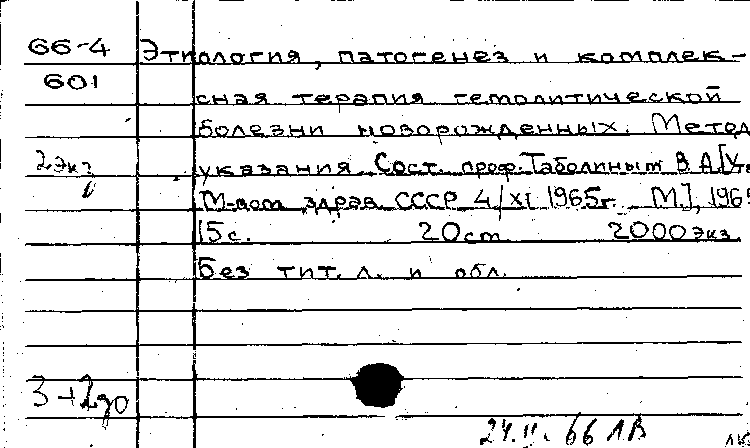 66-4 Этиология, патогенез и комплек-
601
сная терапия гемолитической
болезни новорожденных. Метод.
2 экз указания. Сост. проф. Таболиным В.А. [Утв.
М-вом здрав. СССР 4/XI 1965г. М.], 1965
15 с. 20 см. 2000 экз.
Без тит. л. и обл.
3+2до
24.II.66 ЛВ